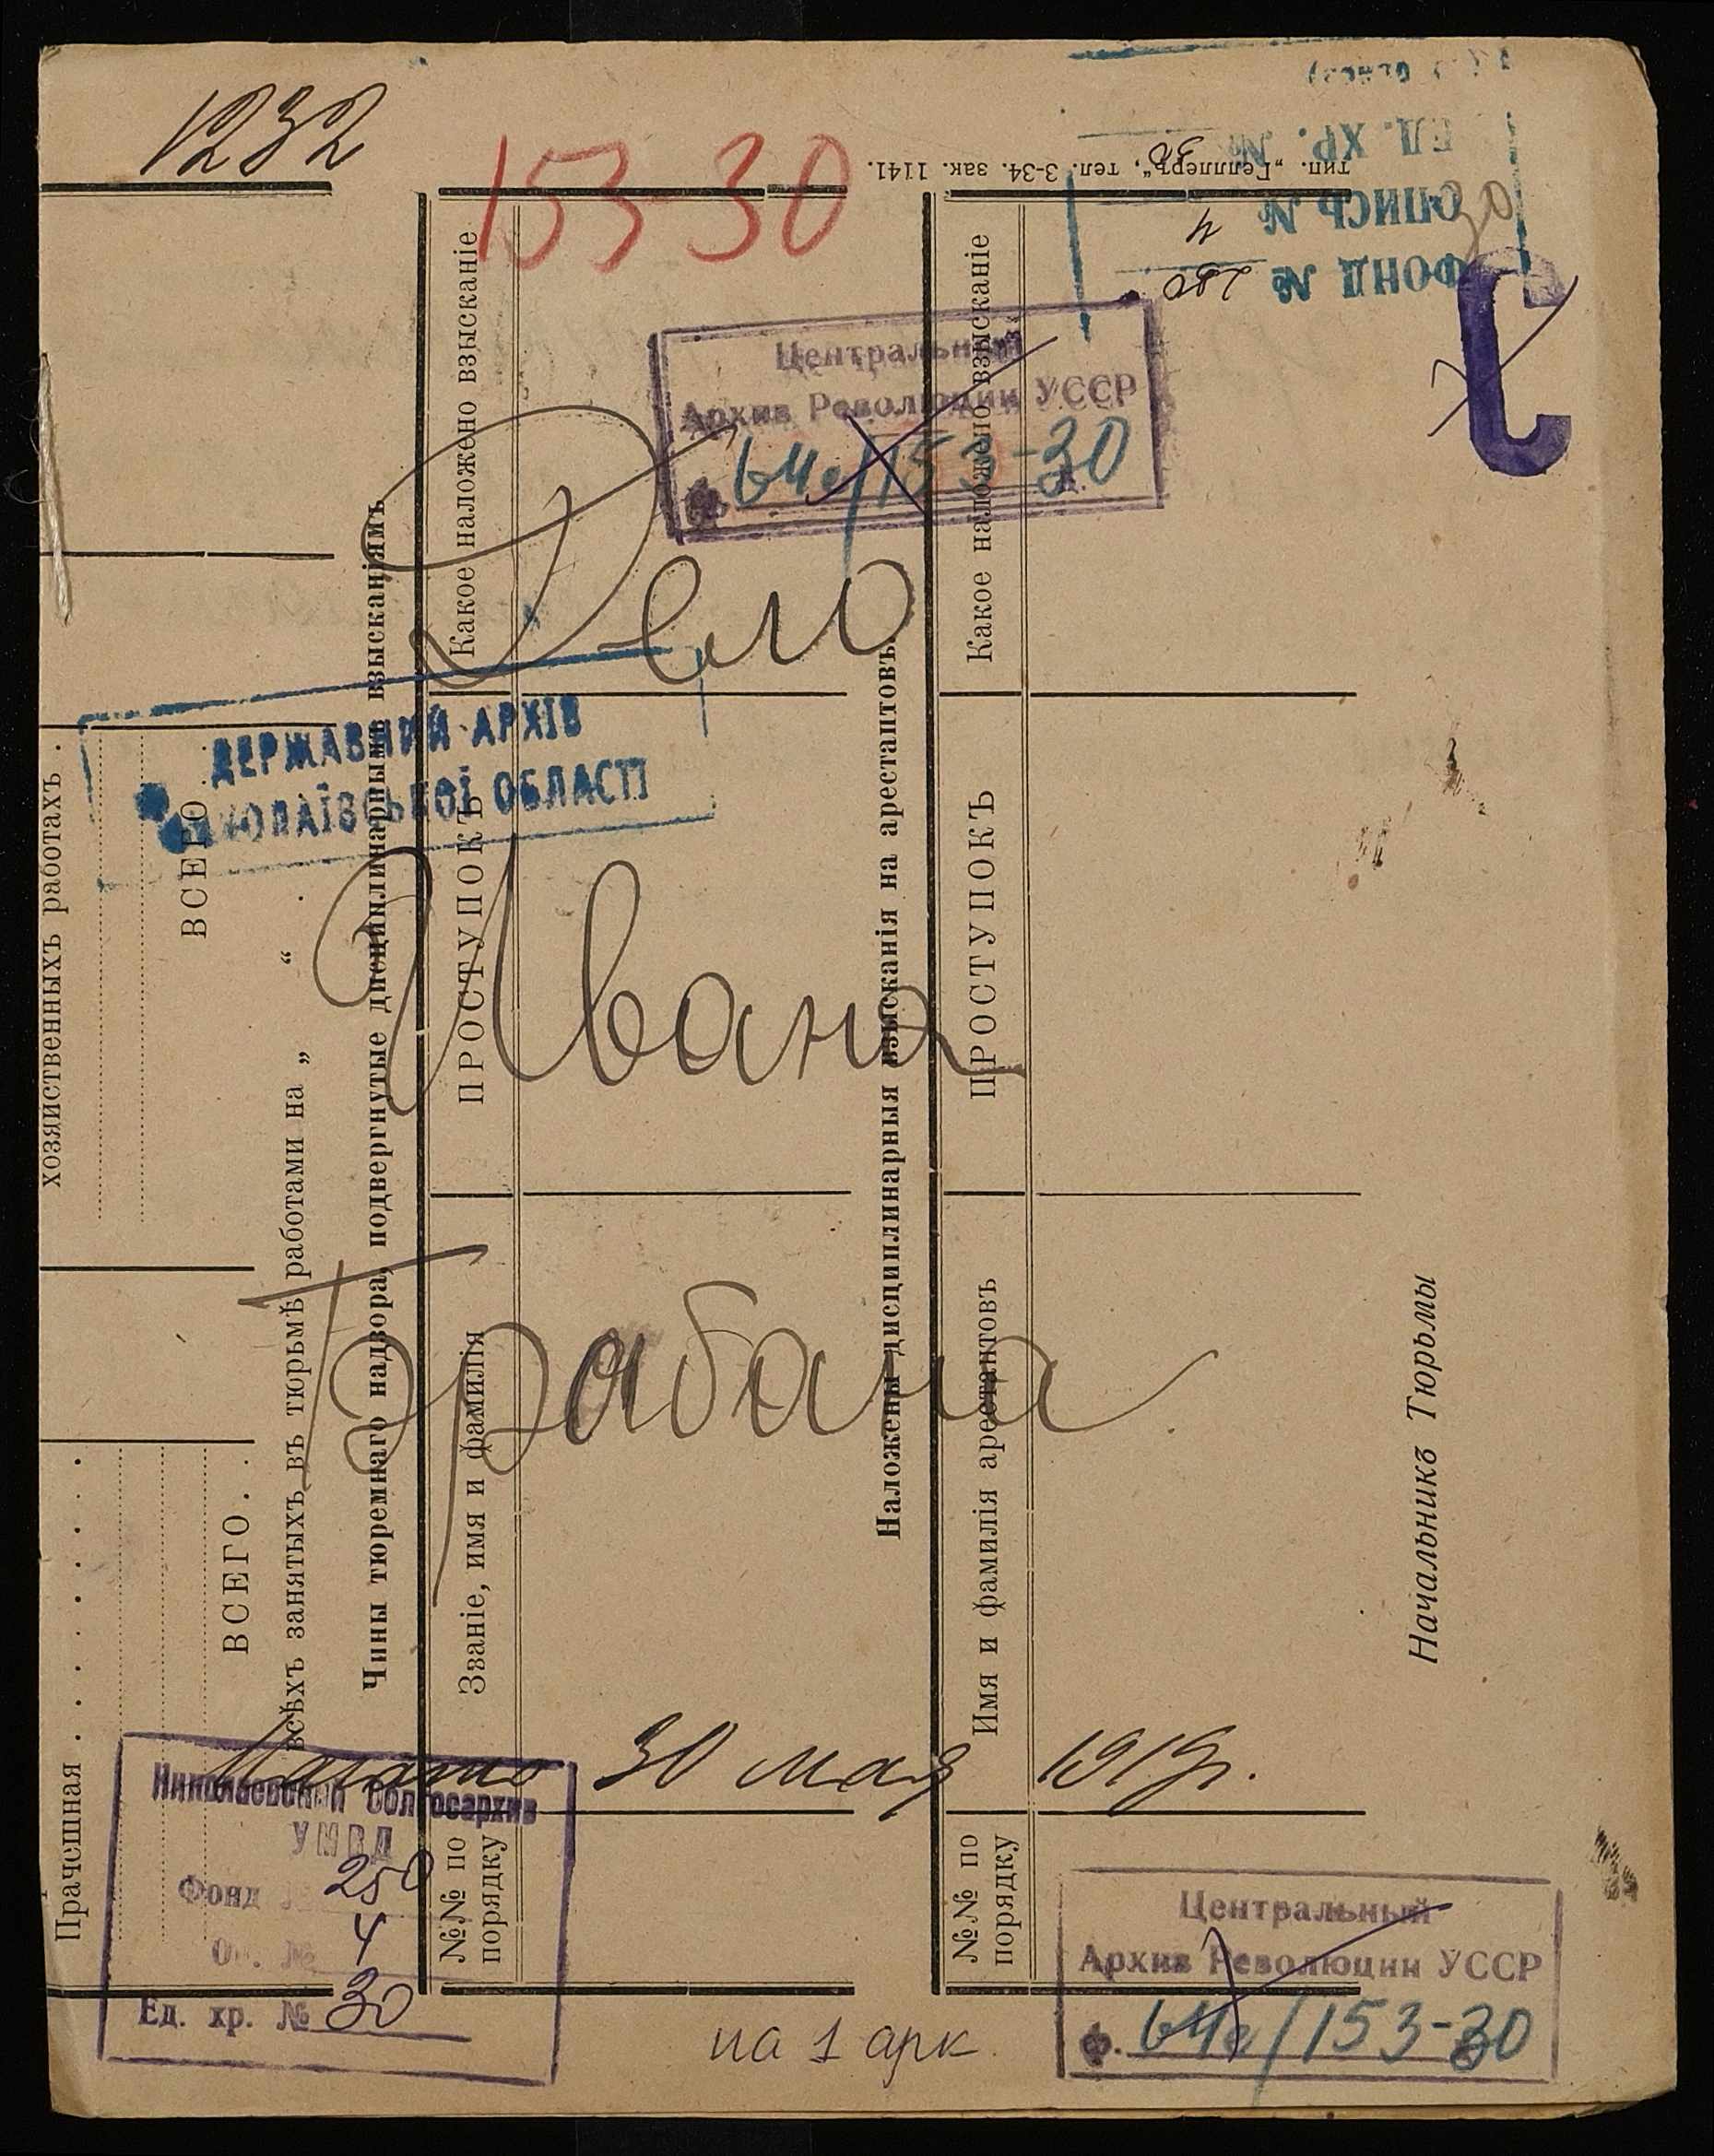 1232
153-30
тип. „Геллеръ“, тел. 3-34. зак. 1141.
ЕД. ХР. № 30
ОПИСЬ № 4
ФОНД № 250
С
Центральный
Архив Революции УССР
ф. 64с/153-30
Дело
ДЕРЖАВНИЙ АРХІВ
МИКОЛАЇВСЬКОЇ ОБЛАСТІ
Ивана
Грабана
Начато 30 мая 1919г.
хозяйственныхъ работахъ .
ВСЕГО .
Прачешная . . . . . . . .
ВСЕГО . .
всѣхъ занятыхъ въ тюрьмѣ работами на „ “ .
Чины тюремнаго надзора, подвергнутые дисциплинарнымъ взысканіямъ
№№ по порядку
Званіе, имя и фамилія
ПРОСТУПОКЪ
Какое наложено взысканіе
Наложены дисциплинарныя взысканія на арестантовъ
№№ по порядку
Имя и фамилія арестантовъ
ПРОСТУПОКЪ
Какое наложено взысканіе
Начальникъ Тюрьмы
Николаевский Облгосархив
УМВД
Фонд № 250
Оп. № 4
Ед. хр. № 30
на 1 арк.
Центральный
Архив Революции УССР
ф. 64с/153-30